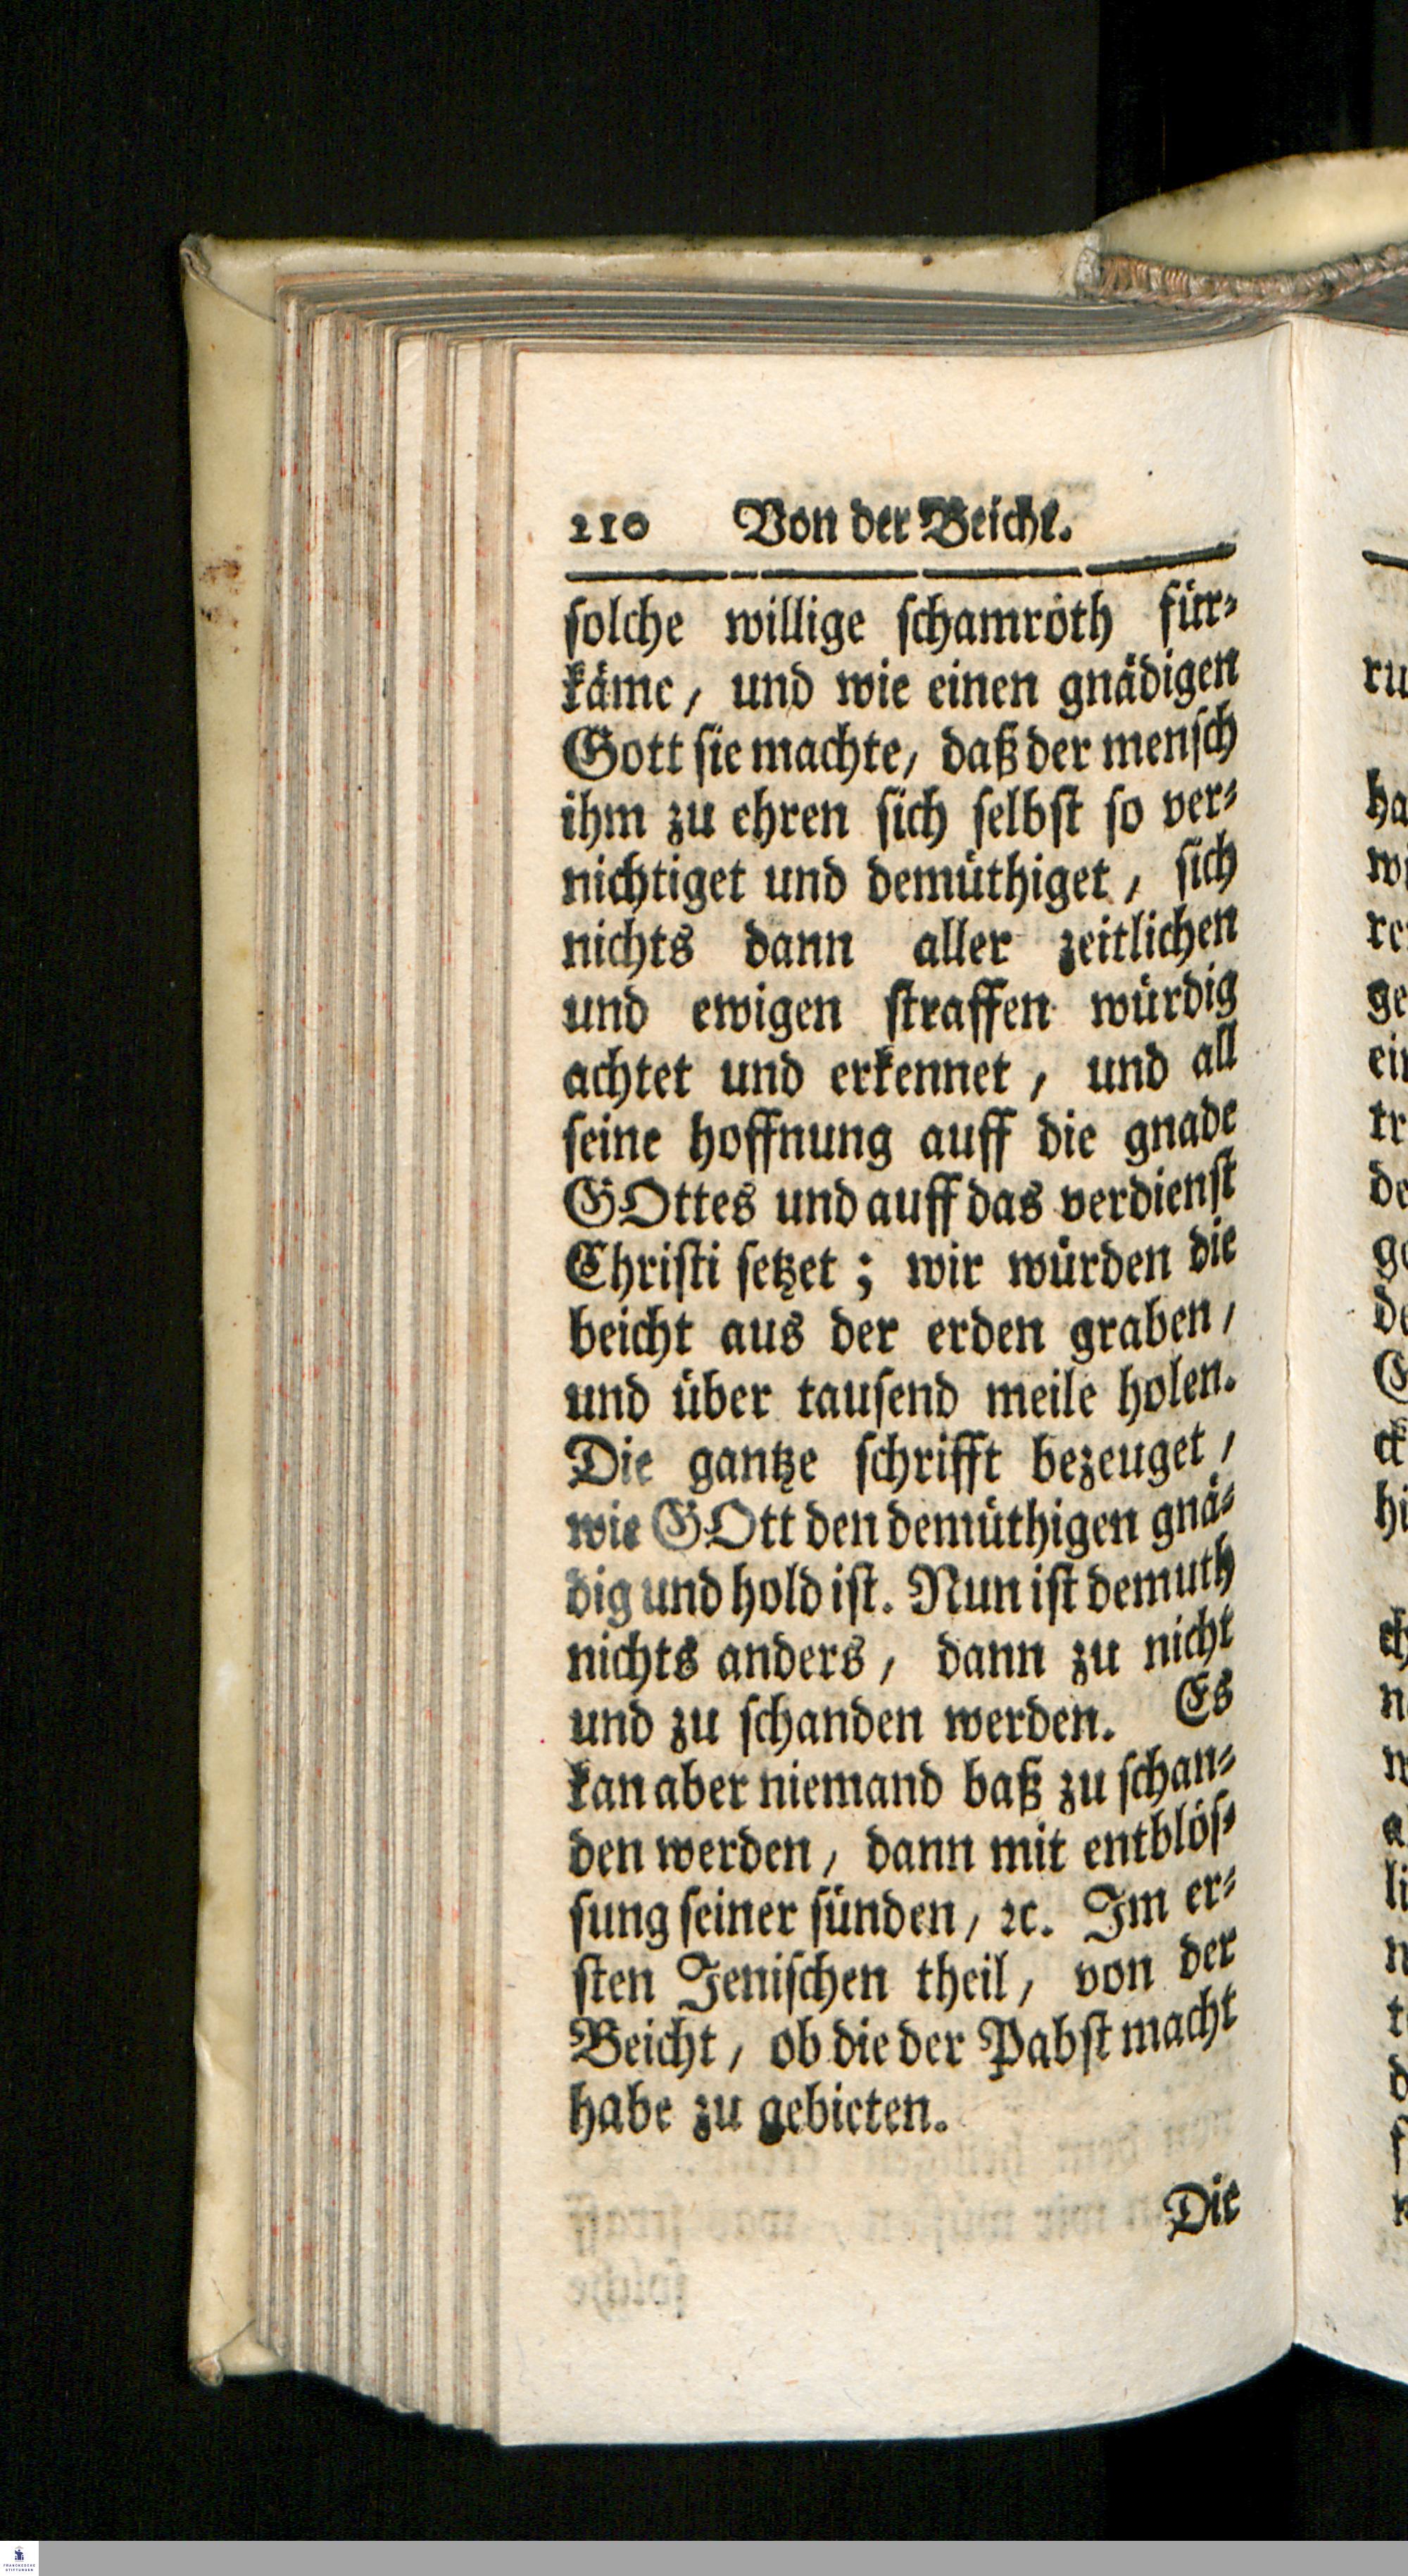 210 Von der Beicht.
ſolche willige ſchamröth für⸗
käme, und wie einen gnädigen
Gott ſie machte, daß der menſch
ihm zu ehren ſich ſelbſt ſo ver⸗
nichtiget und demüthiget, ſich
nichts dann aller zeitlichen
und ewigen ſtraffen würdig
achtet und erkennet, und all
ſeine hoffnung auff die gnade
GOttes und auff das verdienſt
Chriſti ſetzet; wir würden die
beicht aus der erden graben,
und über tauſend meile holen.
Die gantze ſchrifft bezeuget,
wie GOtt den demüthigen gnä⸗
dig und hold iſt. Nun iſt demuth
nichts anders, dann zu nicht
und zu ſchanden werden. Es
kan aber niemand baß zu ſchan⸗
den werden, dann mit entblöſ⸗
ſung ſeiner ſünden, ꝛc. Im er⸗
ſten Jeniſchen theil, von der
Beicht, ob die der Pabſt macht
habe zu gebieten.
Die
ru
ha
wi
ge
ein
tr
de
hi